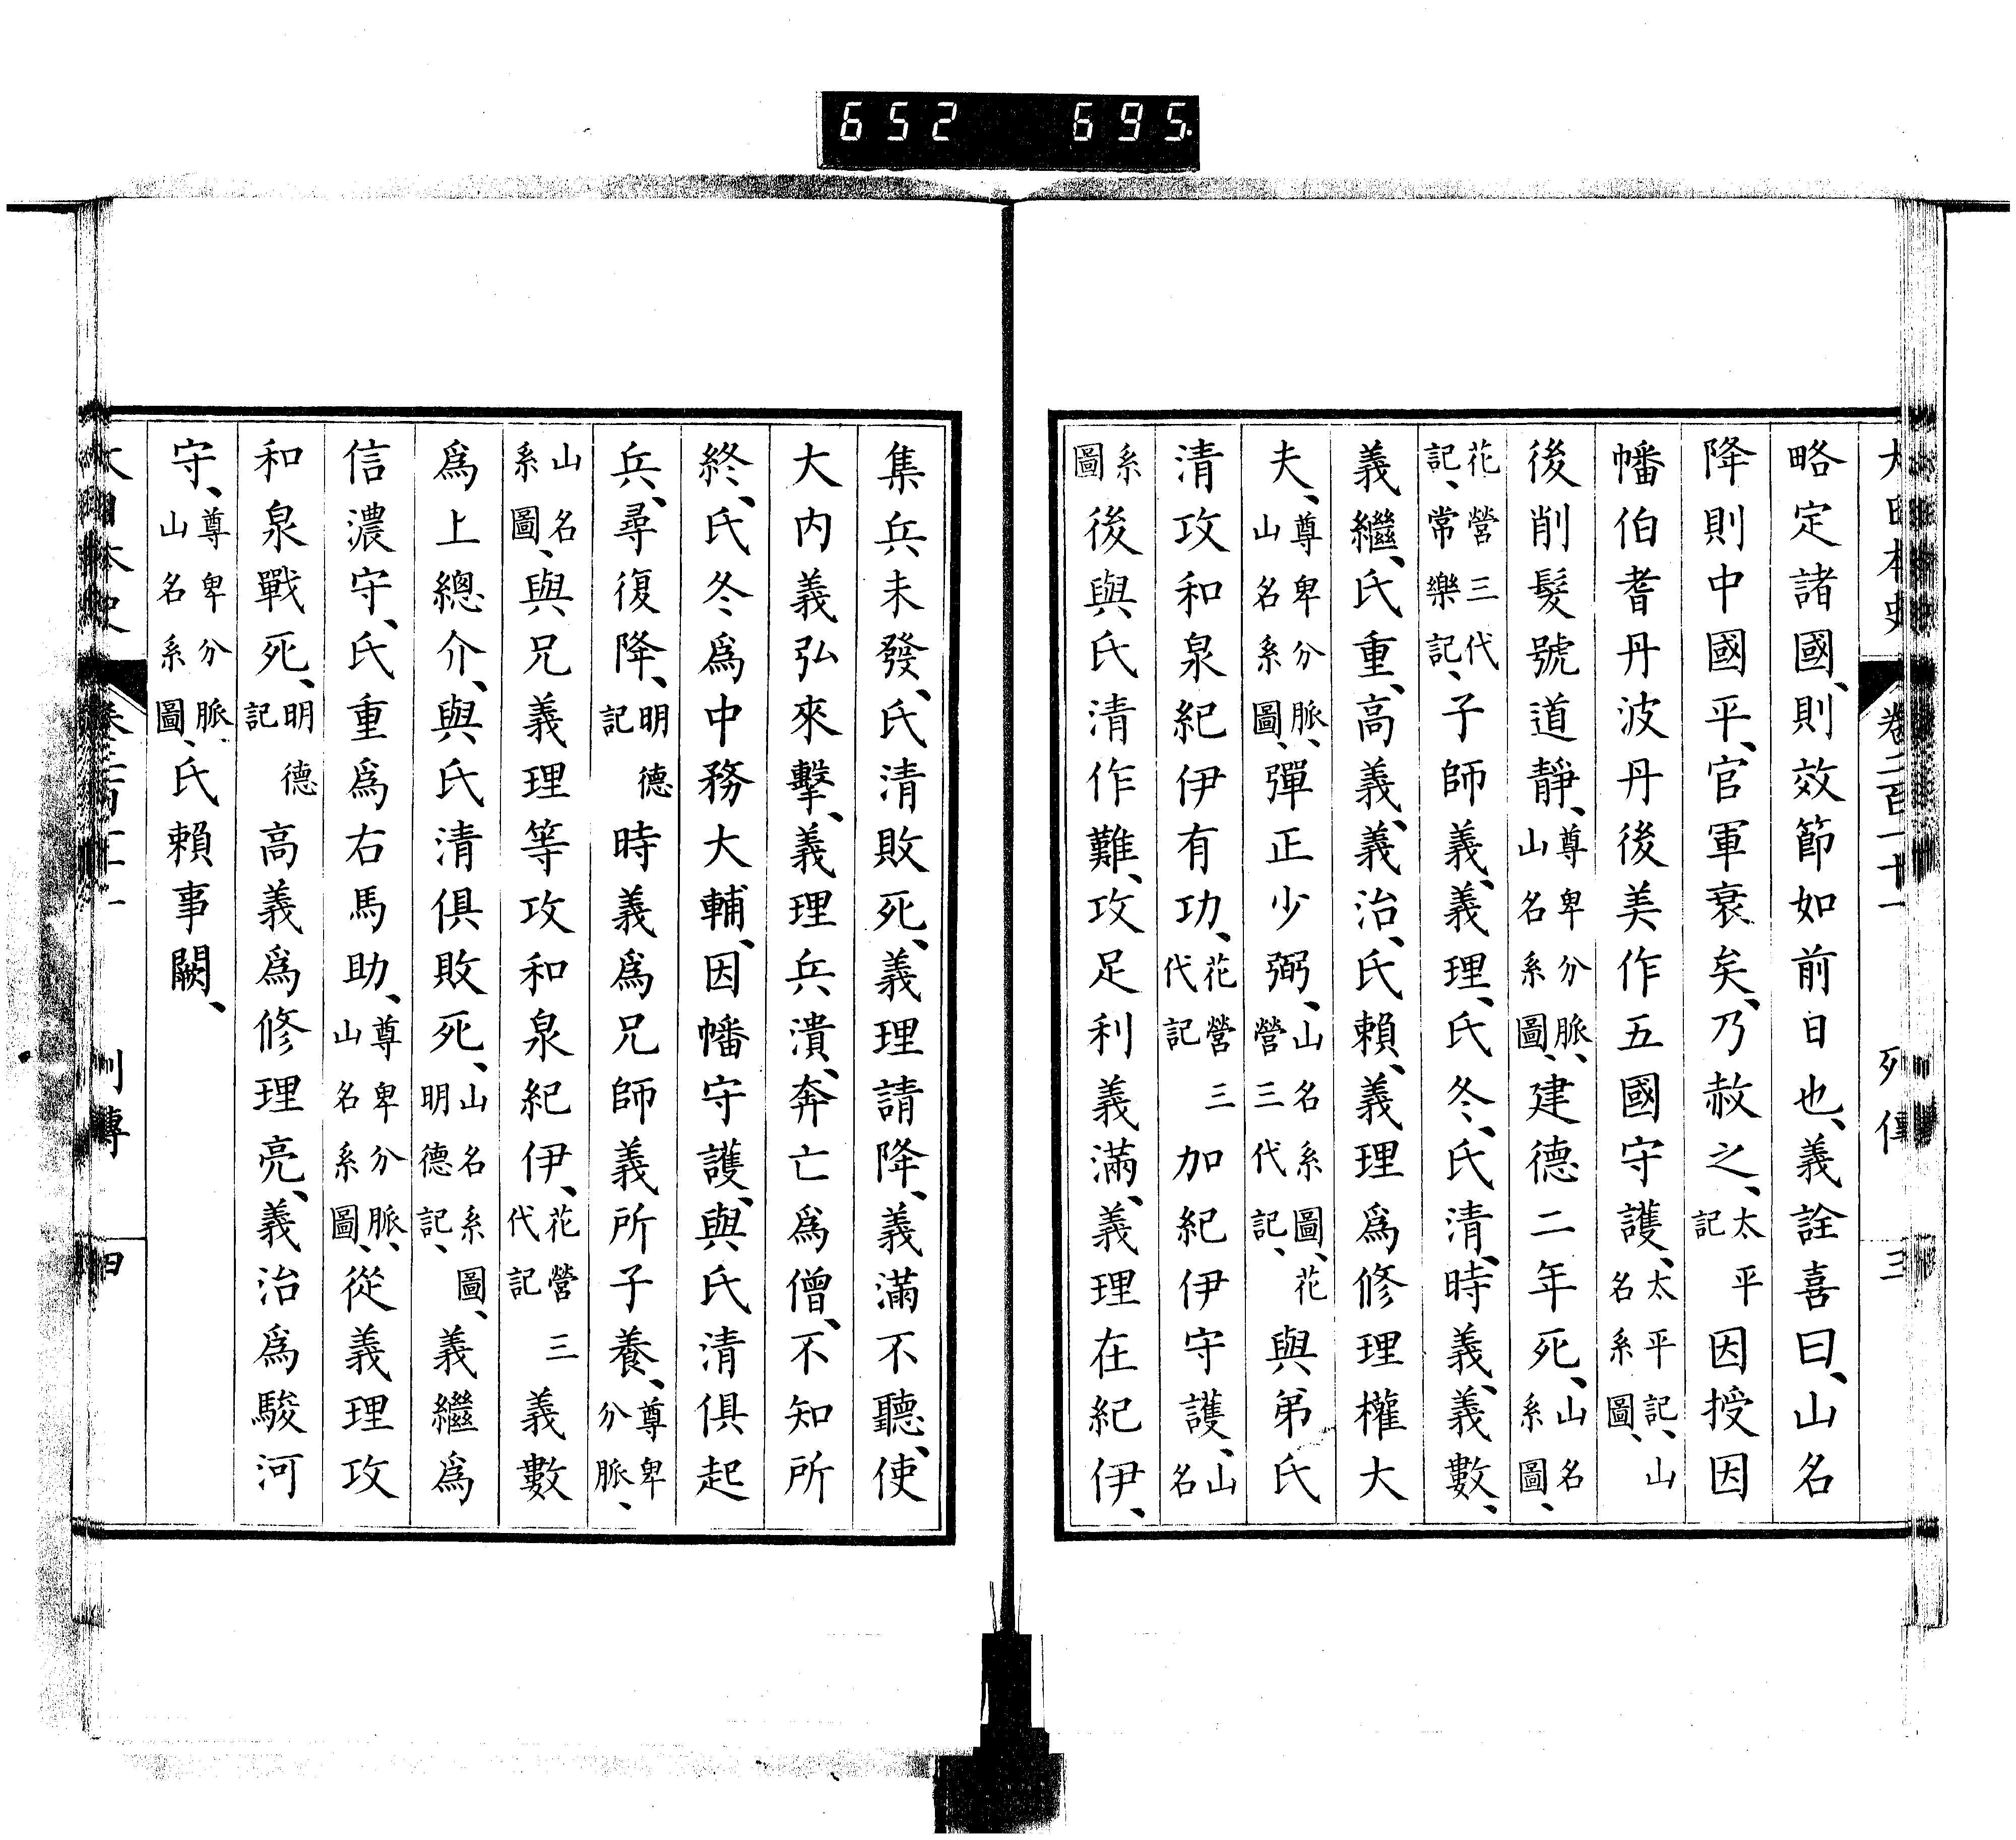 652 695
大日本史 卷二百一十一 列傳 三
略定諸國、則效節如前日也、義詮喜曰、山名
降則中國平、官軍衰矣、乃赦之、太平記因授因
幡伯耆丹波丹後美作五國守護、太平記、山名系圖、
後削髮號道靜、尊卑分脈、山名系圖、建德二年死、山名系圖、
花營三代記、常樂記、子師義、義理、氏冬、氏清、時義、義數、
義繼、氏重、高義、義治、氏賴、義理爲修理權大
夫、尊卑分脈、山名系圖、彈正少弼、山名系圖、花營三代記、與弟氏
清攻和泉紀伊有功、花營三代記加紀伊守護、山名
系圖後與氏清作難、攻足利義滿、義理在紀伊、
集兵未發、氏清敗死、義理請降、義滿不聽、使
大内義弘來擊、義理兵潰、奔亡爲僧、不知所
終、氏冬爲中務大輔、因幡守護、與氏清俱起
兵、尋復降、明德記時義爲兄師義所子養、尊卑分脈、
山名系圖、與兄義理等攻和泉紀伊、花營三代記義數
爲上總介、與氏清俱敗死、山名系圖、明德記、義繼爲
信濃守、氏重爲右馬助、尊卑分脈、山名系圖、從義理攻
和泉戰死、明德記高義爲修理亮、義治爲駿河
守、尊卑分脈、山名系圖、氏賴事闕、
大日本史 卷二百一十一 列傳 四